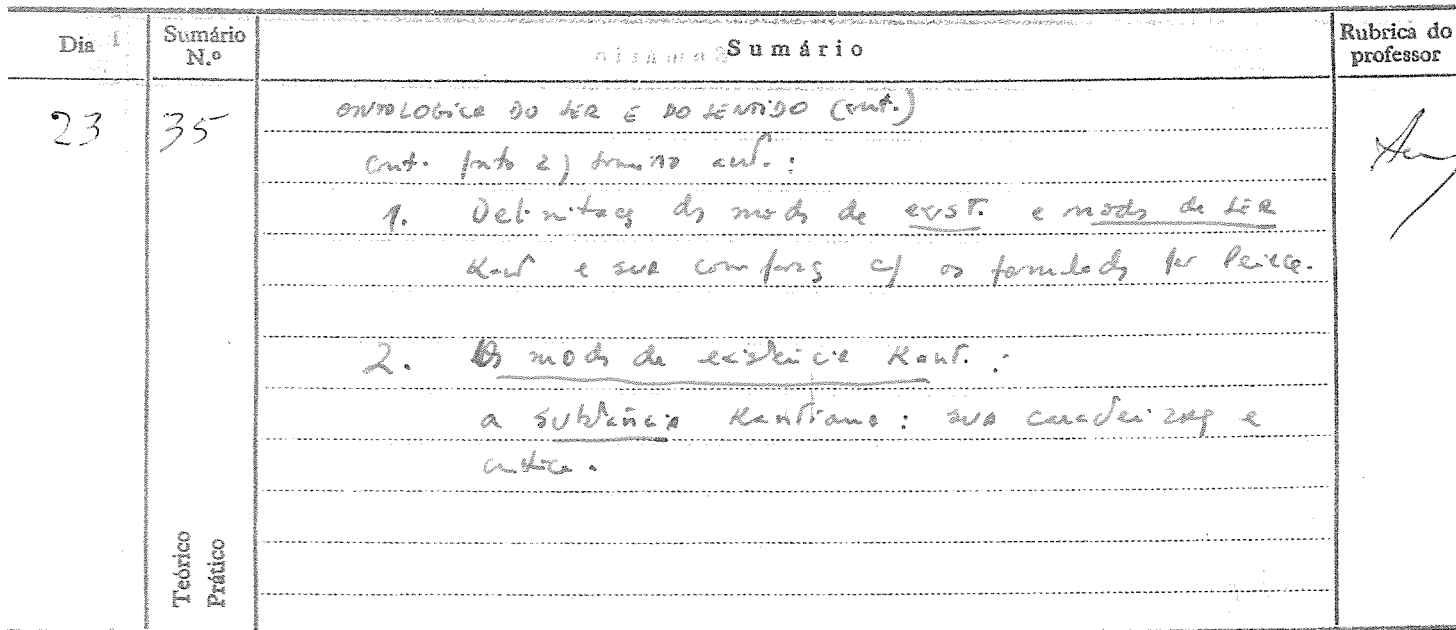 Dia
Sumário N.º
Sumário
Rubrica do professor
23
35
ONTOLOGICA DO SER E DO SENTIDO (cont.)
Cont. ponto 2)
1. Delimitaç dos mods de exist. e mods de SER
Kant e sua comparaç c/ os formulads por Peirce.
2. Os mods de existência Kant. :
a substância Kantiana : sua caracterizaç e
crítica.
Teórico
Prático